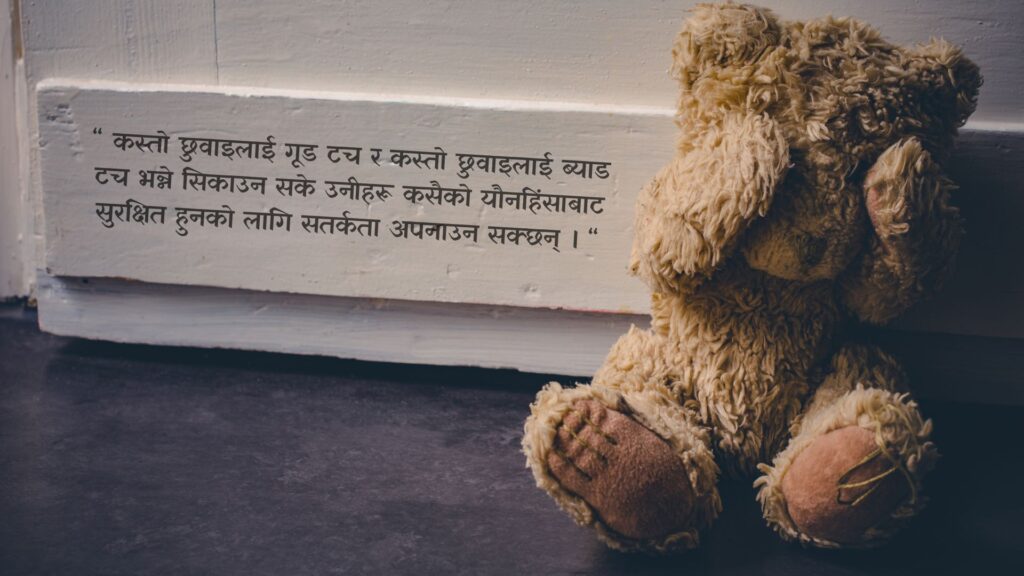 “ कस्तो छुवाइलाई गूड टच र कस्तो छुवाइलाई ब्याड
टच भन्ने सिकाउन सके उनीहरू कसैको यौनहिंसाबाट
सुरक्षित हुनको लागि सतर्कता अपनाउन सक्छन् । “